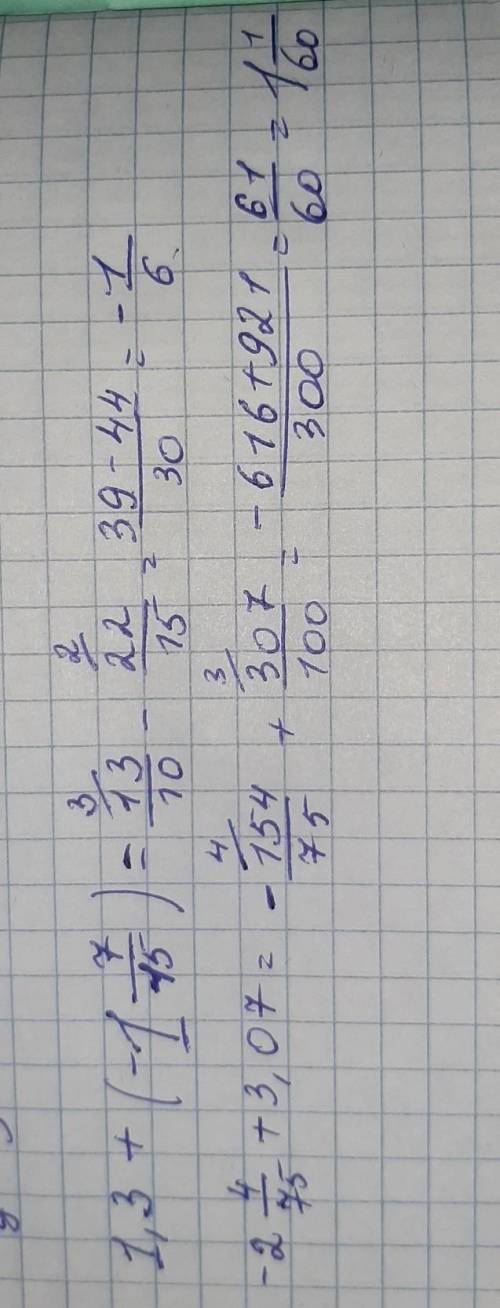 1,3 + (-1 7/15) = 13/10 ³ - 22/15 ² = (39 - 44)/30 = -1/6
-2 4/75 + 3,07 = -154/75 ⁴ + 307/100 ³ = (-616 + 921)/300 = 61/60 = 1 1/60